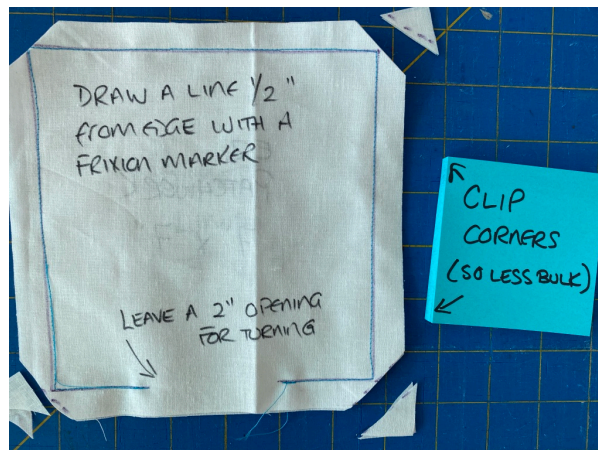 DRAW A LINE 1/2"
from EDGE WITH A
FRIXION MARKER
LEAVE A 2" OPENING
FOR TURNING
CLIP
CORNERS
(SO LESS BULK)